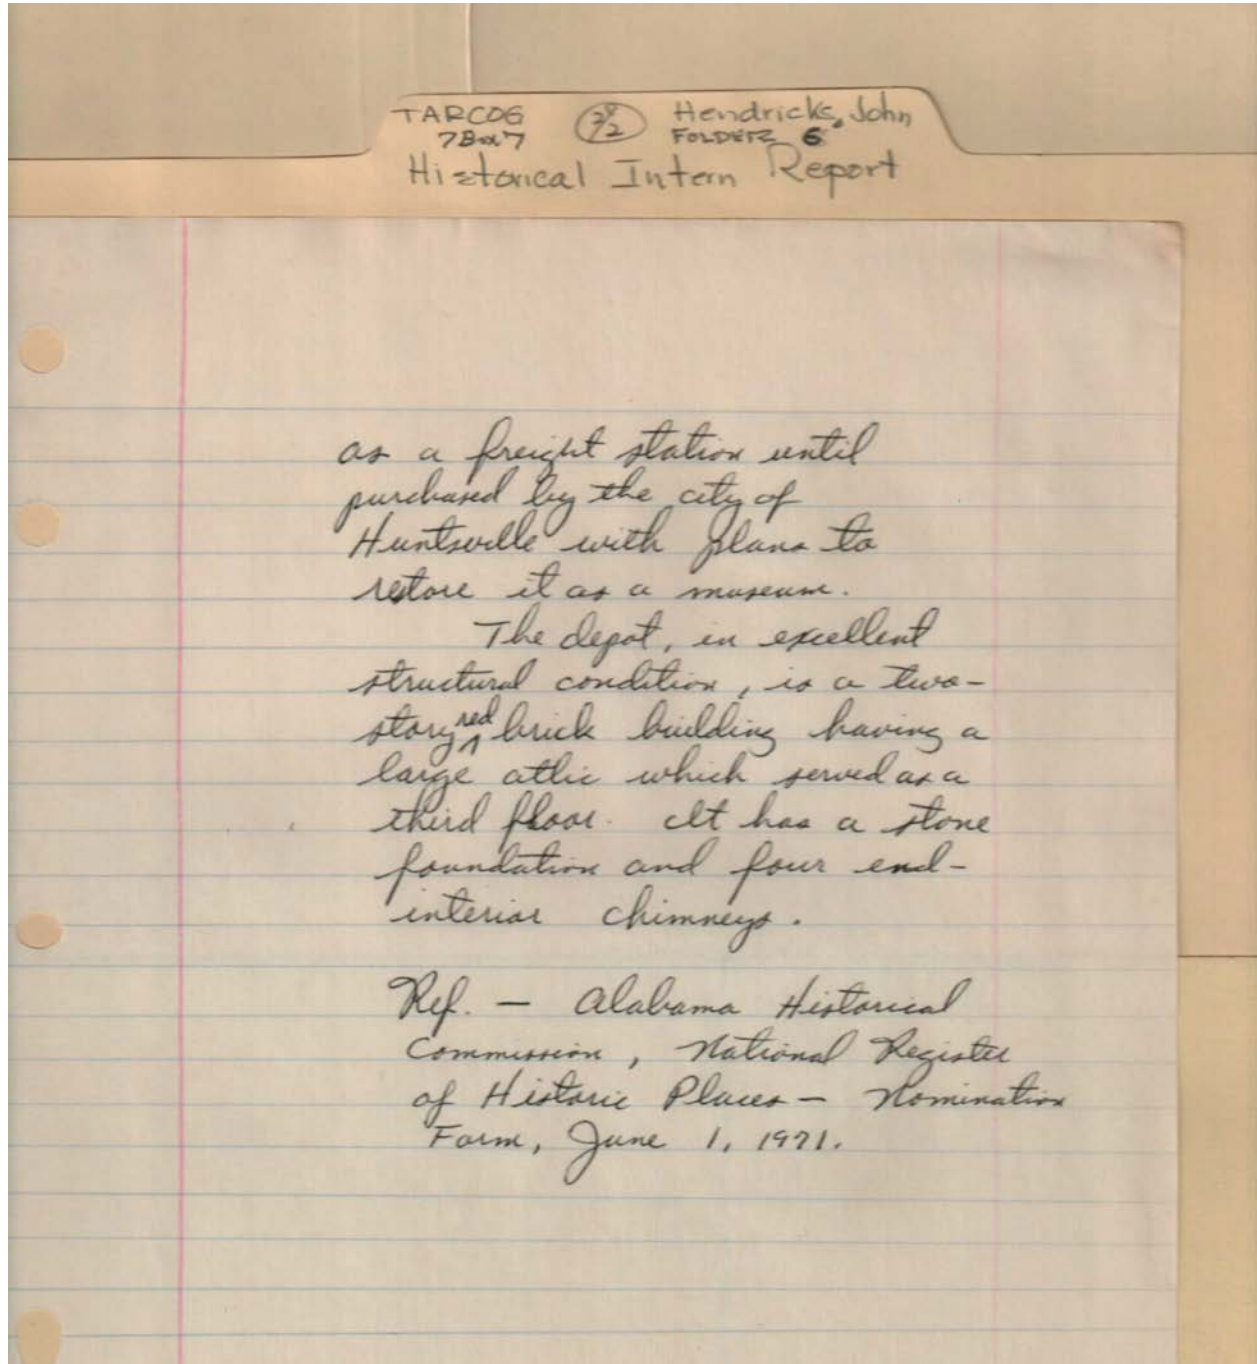 TARCOG
Hendricks, John
FOLDER 6
Historical Intern Report
as a freight station until
purchased by the city of
Huntsville with plans to
restore it as a museum.
The depot, in excellent
structural condition, is a two-
story red brick building having a
large attic which served as a
third floor. It has a stone
foundation and four end-
interior chimneys.
Ref. — Alabama Historical
Commission, National Register
of Historic Places — Nomination
Form, June 1, 1971.